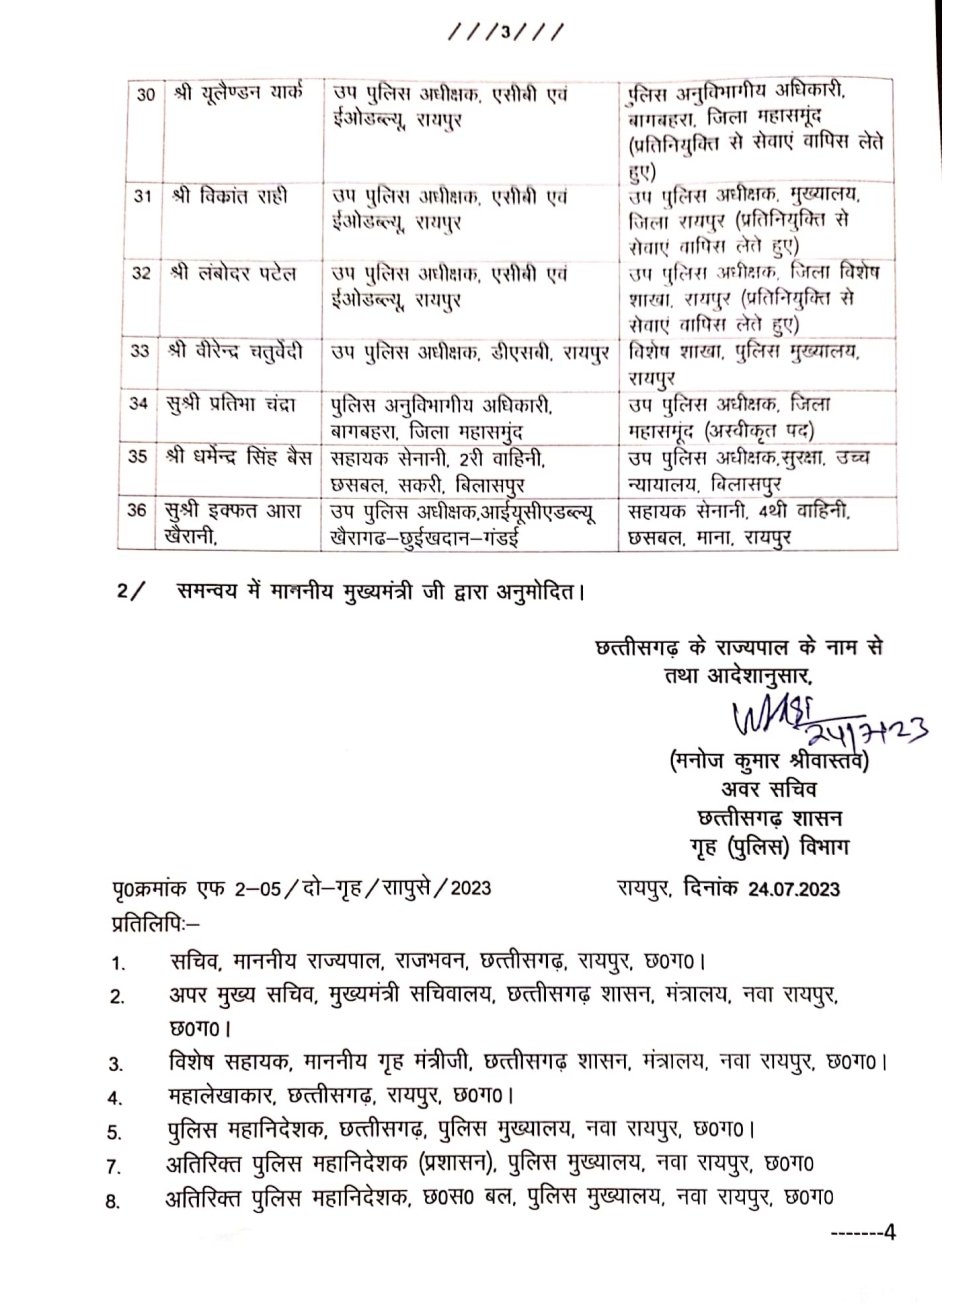 ///3///
30 श्री यूलैण्डन यार्क उप पुलिस अधीक्षक, एसीबी एवं पुलिस अनुविभागीय अधिकारी,
ईओडब्ल्यू, रायपुर बागबहरा, जिला महासमूंद
(प्रतिनियुक्ति से सेवाएं वापिस लेते
हुए)
31 श्री विकांत राही उप पुलिस अधीक्षक, एसीबी एवं उप पुलिस अधीक्षक, मुख्यालय,
ईओडब्ल्यू, रायपुर जिला रायपुर (प्रतिनियुक्ति से
सेवाएं वापिस लेते हुए)
32 श्री लंबोदर पटेल उप पुलिस अधीक्षक, एसीबी एवं उप पुलिस अधीक्षक, जिला विशेष
ईओडब्ल्यू, रायपुर शाखा, रायपुर (प्रतिनियुक्ति से
सेवाएं वापिस लेते हुए)
33 श्री वीरेन्द्र चतुर्वेदी उप पुलिस अधीक्षक, डीएसबी, रायपुर विशेष शाखा, पुलिस मुख्यालय,
रायपुर
34 सुश्री प्रतिभा चंद्रा पुलिस अनुविभागीय अधिकारी, उप पुलिस अधीक्षक, जिला
बागबहरा, जिला महासमुंद महासमूंद (अस्वीकृत पद)
35 श्री धर्मेन्द्र सिंह बैस सहायक सेनानी, 2री वाहिनी, उप पुलिस अधीक्षक,सुरक्षा, उच्च
छसबल, सकरी, बिलासपुर न्यायालय, बिलासपुर
36 सुश्री इक्फत आरा उप पुलिस अधीक्षक,आईयूसीएडब्ल्यू सहायक सेनानी, 4थी वाहिनी,
खैरानी, खैरागढ–छुईखदान–गंडई छसबल, माना, रायपुर
2/ समन्वय में माननीय मुख्यमंत्री जी द्वारा अनुमोदित।
छत्तीसगढ़ के राज्यपाल के नाम से
तथा आदेशानुसार,
24/7/23
(मनोज कुमार श्रीवास्तव)
अवर सचिव
छत्तीसगढ़ शासन
गृह (पुलिस) विभाग
पृ0क्रमांक एफ 2–05/दो–गृह/रापुसे/2023 रायपुर, दिनांक 24.07.2023
प्रतिलिपिः–
1. सचिव, माननीय राज्यपाल, राजभवन, छत्तीसगढ़, रायपुर, छ0ग0।
2. अपर मुख्य सचिव, मुख्यमंत्री सचिवालय, छत्तीसगढ़ शासन, मंत्रालय, नवा रायपुर,
छ0ग0।
3. विशेष सहायक, माननीय गृह मंत्रीजी, छत्तीसगढ़ शासन, मंत्रालय, नवा रायपुर, छ0ग0।
4. महालेखाकार, छत्तीसगढ़, रायपुर, छ0ग0।
5. पुलिस महानिदेशक, छत्तीसगढ़, पुलिस मुख्यालय, नवा रायपुर, छ0ग0।
7. अतिरिक्त पुलिस महानिदेशक (प्रशासन), पुलिस मुख्यालय, नवा रायपुर, छ0ग0
8. अतिरिक्त पुलिस महानिदेशक, छ0स0 बल, पुलिस मुख्यालय, नवा रायपुर, छ0ग0
-------4